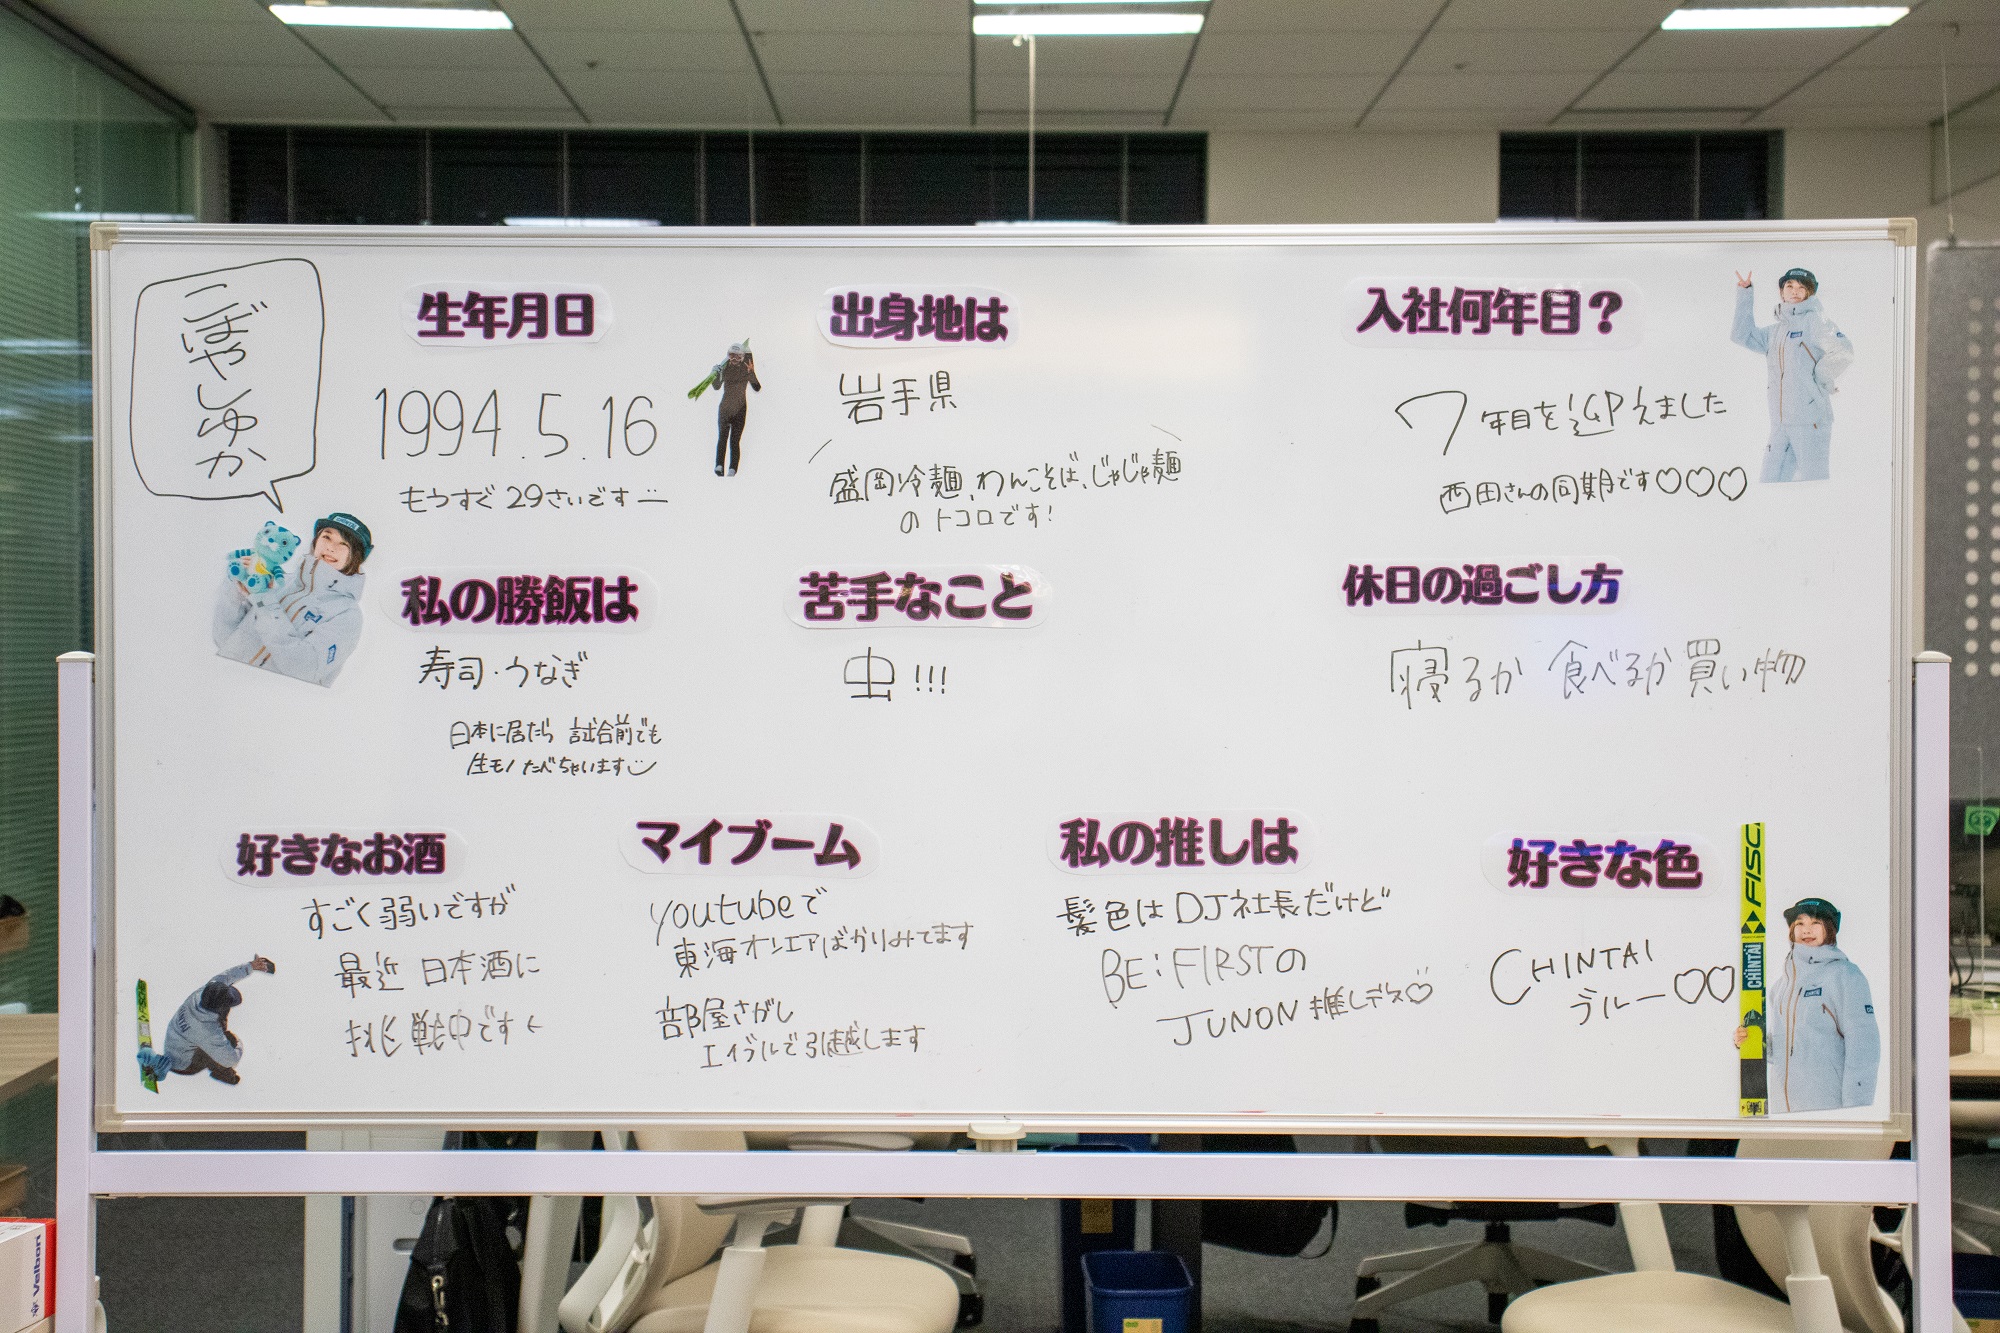 こばやしゆか
生年月日
1994.5.16
もうすぐ29さいです
出身地は
岩手県
盛岡冷麺、わんこそば、じゃじゃ麺
のトコロです!
入社何年目?
7年目を迎えました
西田さんの同期です♡♡♡
私の勝飯は
寿司・うなぎ
日本に居たら 試合前でも
生モノたべちゃいます
苦手なこと
虫!!!
休日の過ごし方
寝るか 食べるか 買い物
好きなお酒
すごく弱いですが
最近 日本酒に
挑戦中です
マイブーム
youtubeで
東海オンエアばかりみてます
部屋さがし
エイブルで引越します
私の推しは
髪色はDJ社長だけど
BE:FIRSTの
JUNON推しデス♡
好きな色
CHINTAI
ブルー♡♡
FISC
CHINTAI
Velbon